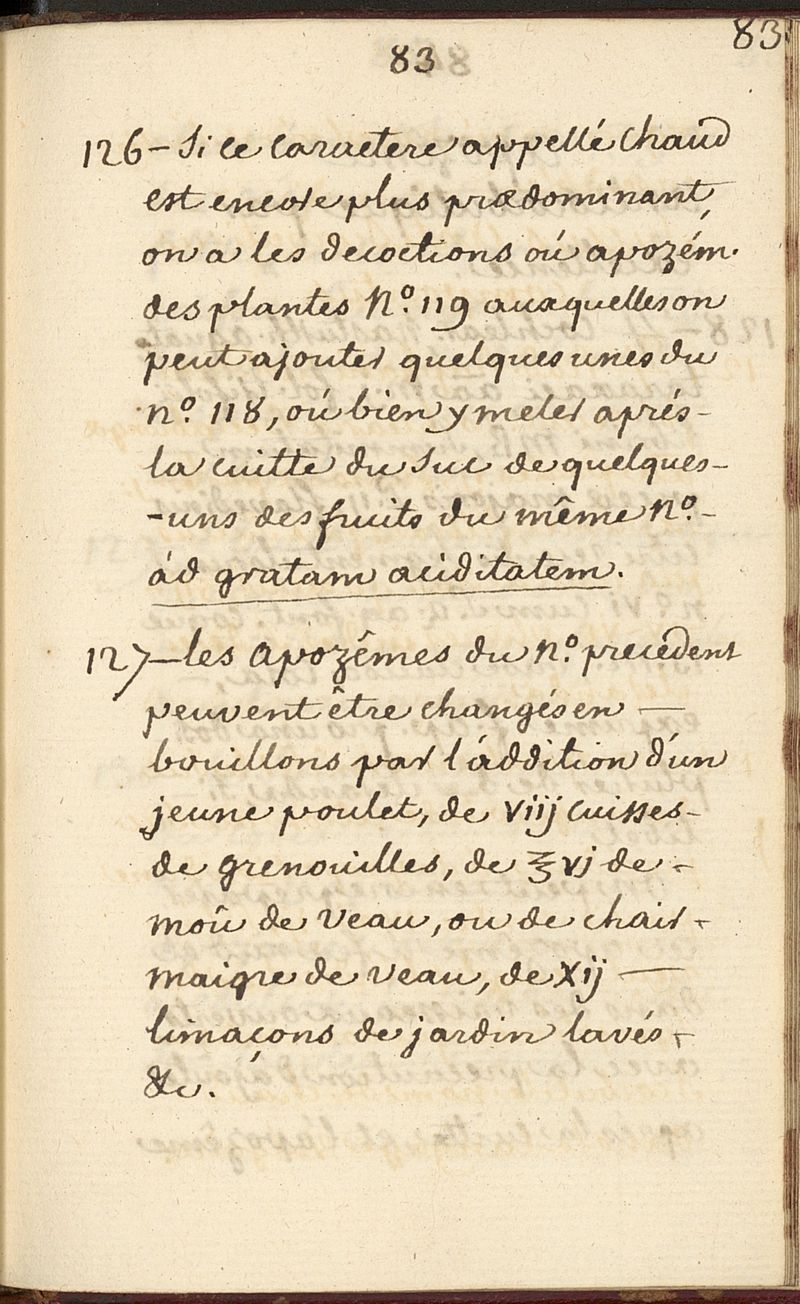 83
83
126 – Si ce caractere appellé chaud
est encore plus prædominant,
on a les decoctions oú apozém.
des plantes N.º 119 auxquelles on
peut ajouter quelques unes du
n.º 118, oú bien y meler aprés –
la cuitte du suc de quelques –
– uns des fruits du même N.º –
ád gratam aciditatem.
127 – les Apozêmes du N.º precedent
peuvent être changés en —
bouillons par l'áddition d'un
jeune poulet, de viij cuisses –
de grenouilles, de ℥vj de –
moû de veau, ou de chair –
maigre de veau, de Xij —
limaçons de jardin lavés –
&c.